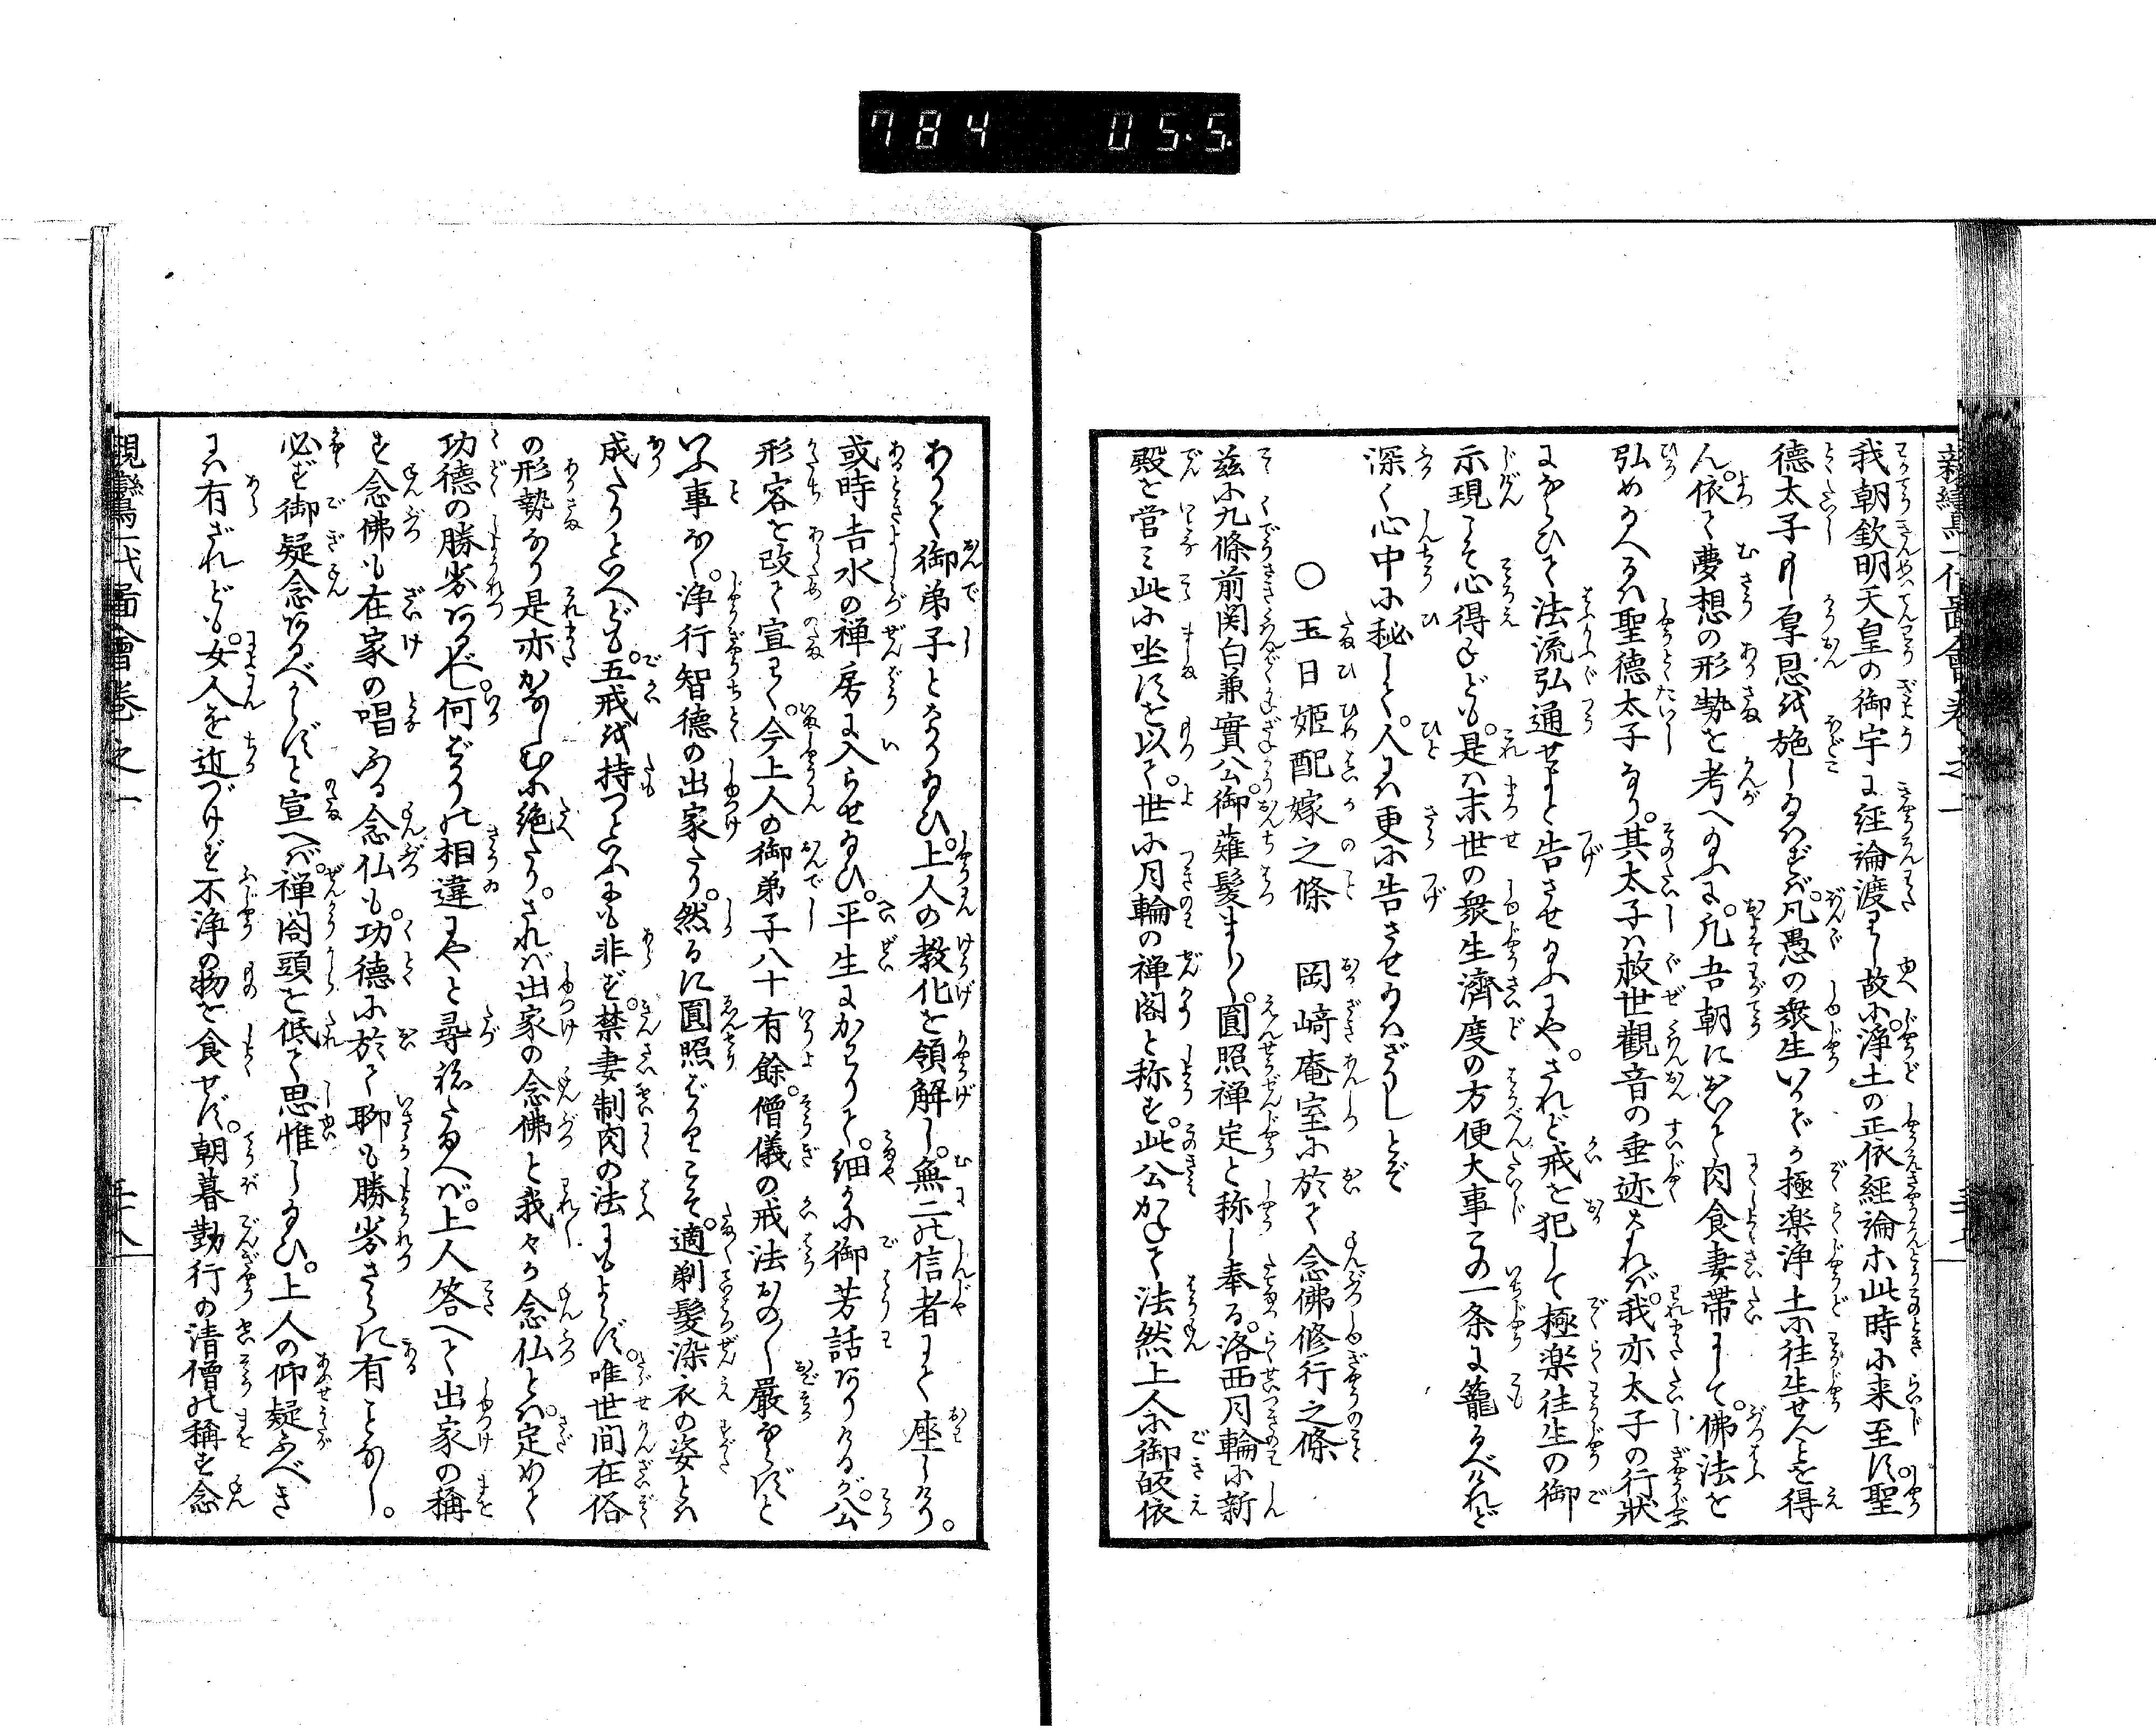 784 05.5.
親鸞一代圖會巻之一
我朝欽明天皇の御宇に経論渡りし故に浄土の正依経論も此時に来至す。聖
徳太子の厚恩を施し給はずば。凡愚の衆生いかでか極楽浄土に往生せんことを得
ん。依て夢想の形勢を考へ給ふに。凡吾朝において肉食妻帯にして。佛法を
弘め給へるは聖徳太子なり。其太子は救世觀音の垂迹なれば。我亦太子の行状
にならひて法流弘通せよと告させ給ふにや。されど戒を犯して極楽往生の御
示現こそ心得ねども。是は末世の衆生濟度の方便大事この一条に籠るべけれど
深く心中に秘して。人には更に告させ給はざりしとぞ
○玉日姫配嫁之條 岡﨑庵室に於て念佛修行之條
茲に九條前関白兼實公。御薙髪まし〱。圓照禅定と称し奉る。洛西月輪に新
殿を営み此に坐すを以て。世に月輪の禅閤と称す。此公かねて法然上人に御皈依
ありて御弟子となり給ひ。上人の教化を領解し。無二の信者にて座しけり。
或時吉水の禅房に入らせ給ひ。平生にかはりて。細かに御芳話ありけるが。公
形容を改て宣はく。今上人の御弟子八十有餘。僧儀の戒法おの〱嚴ならずと
いふ事なく。浄行智德の出家たり。然るに圓照ばかりこそ。適剃髪染衣の姿とは
成たりといへども。五戒を持つといふにも非ず。禁妻制肉の法にもよらず。唯世間在俗
の形勢なり是亦かなしむに絶たり。されば出家の念佛と我々が念仏とは。定めて
功德の勝劣あるべし。何ばかりの相違にやと尋ね給へば。上人答へて出家の稱
ず念佛も在家の唱ふる念仏も。功德に於て聊も勝劣さらに有ことなし。
必ず御疑念あるべからずと宣へば。禅閤頭を低て思惟し給ひ。上人の仰疑ふべき
には有ざれども。女人を近づけず不浄の物を食せず。朝暮勤行の清僧の稱す念
親鸞一代圖會巻之一